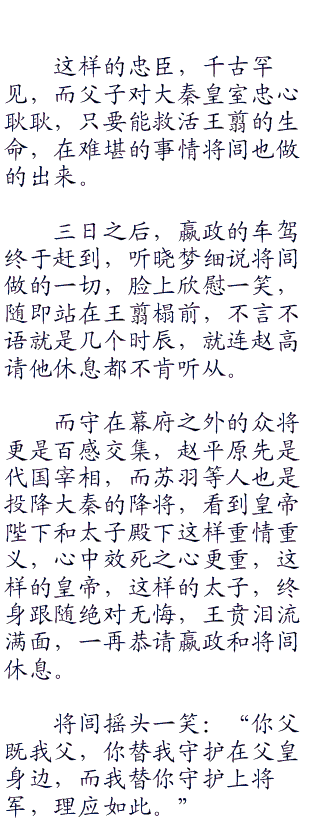 这样的忠臣，千古罕
见，而父子对大秦皇室忠心
耿耿，只要能救活王翦的生
命，在难堪的事情将闾也做
的出来。
三日之后，嬴政的车驾
终于赶到，听晓梦细说将闾
做的一切，脸上欣慰一笑，
随即站在王翦榻前，不言不
语就是几个时辰，就连赵高
请他休息都不肯听从。
而守在幕府之外的众将
更是百感交集，赵平原先是
代国宰相，而苏羽等人也是
投降大秦的降将，看到皇帝
陛下和太子殿下这样重情重
义，心中效死之心更重，这
样的皇帝，这样的太子，终
身跟随绝对无悔，王贲泪流
满面，一再恭请嬴政和将闾
休息。
将闾摇头一笑：“你父
既我父，你替我守护在父皇
身边，而我替你守护上将
军，理应如此。”